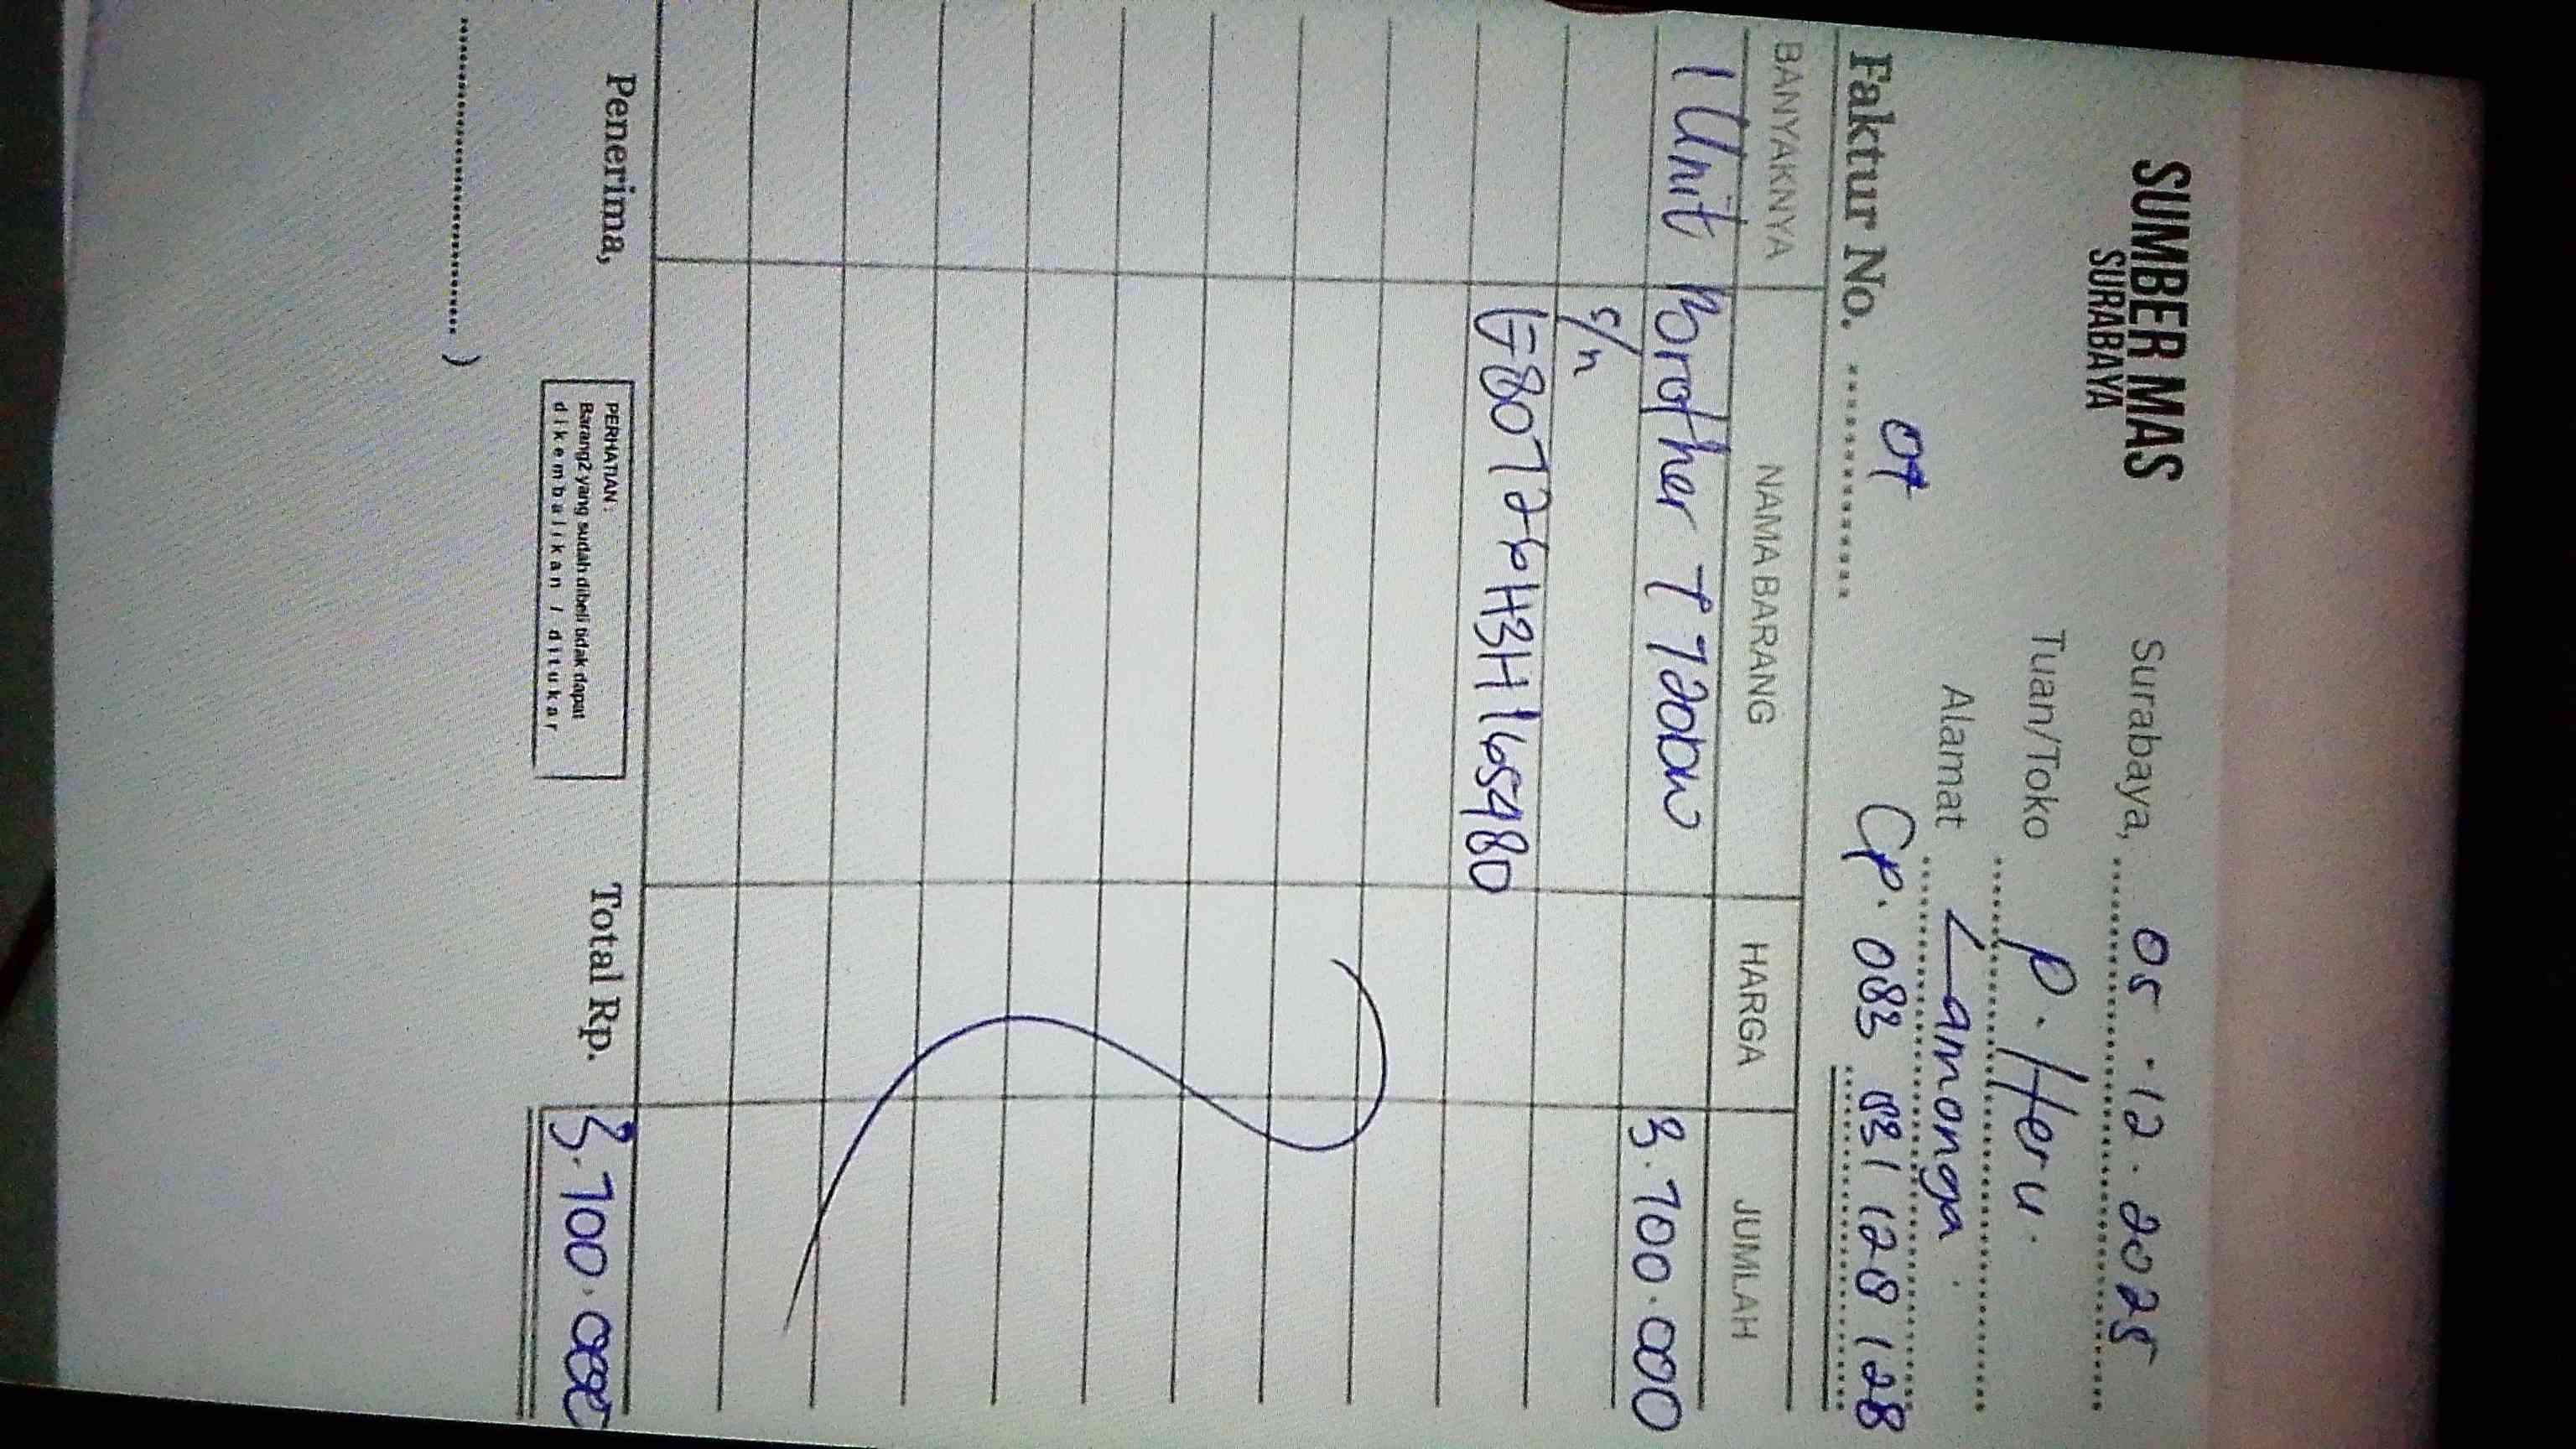 SUMBER MAS
SURABAYA
Surabaya, 05.12.2025
Tuan/Toko P. Heru.
Alamat Lamonga
Cp. 083 831 128 128
Faktur No. 07
BANYAKNYA NAMA BARANG HARGA JUMLAH
1 Unit Brother T 720DW 3.700.000
s/n
E80726H3H165480
Penerima,
PERHATIAN :
Barang2 yang sudah dibeli tidak dapat
dikembalikan / ditukar
Total Rp. 3.700.000
.............................. )